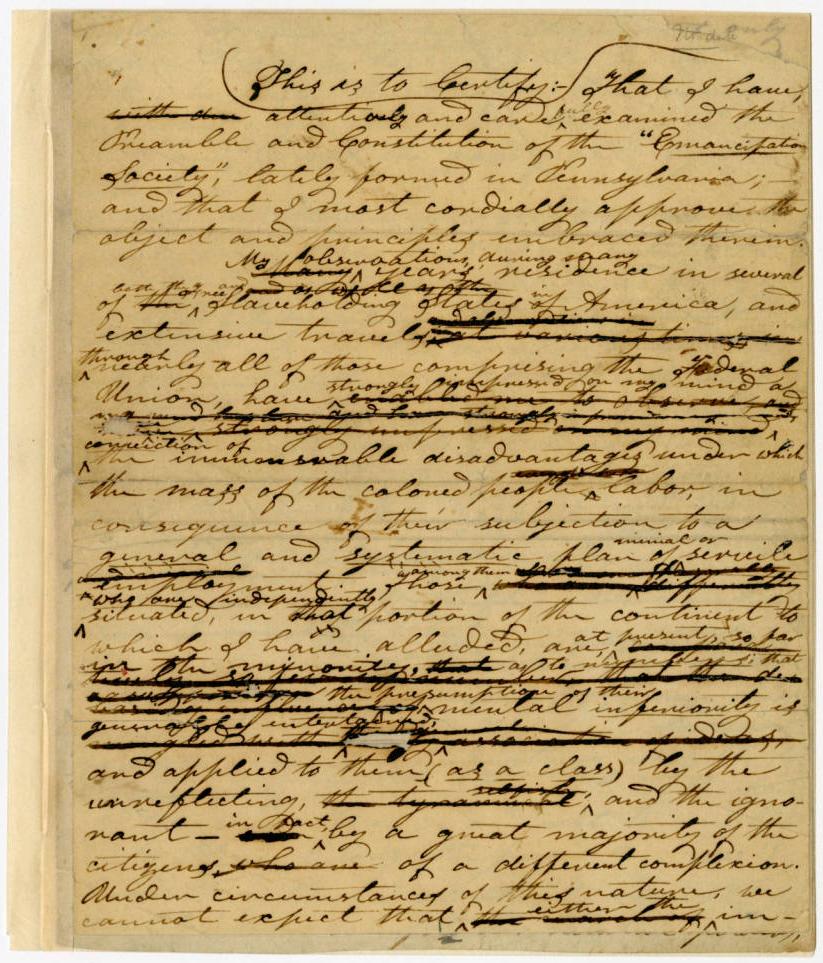 No date
This is to Certify:- That I have,
with due attentively and carefully examined the
Preamble and Constitution of the "Emancipation
Society", lately formed in Pennsylvania;
and that I most cordially approve the
object and principles embraced therein.
My observations, during so many
Many years, residence in several
of the Slaveholding States in of America, and
extensive travels, at various times, in
through
nearly all of those comprising the Federal
strongly impressed on my mind a
Union, have enabled me to observe, and
strongly impressed
conviction of
the immeasurable disadvantages under which
the mass of the colored people labor, in
consequence of their subjection to a
menial or
general and systematic plan of servile
employment. Those among them
who are independently
situated, in that portion of the continent to
which I have alluded, are, at present, so far
in the minority, as to numbers that
the presumption of their
mental inferiority is
generally entertained,
and applied to them (as a class) by the
selfish,
unreflecting, the tyrannical, and the igno-
rant — in fact, by a great majority of the
citizens, who are of a different complexion.
Under circumstances of this nature, we
either the
cannot expect that the im-